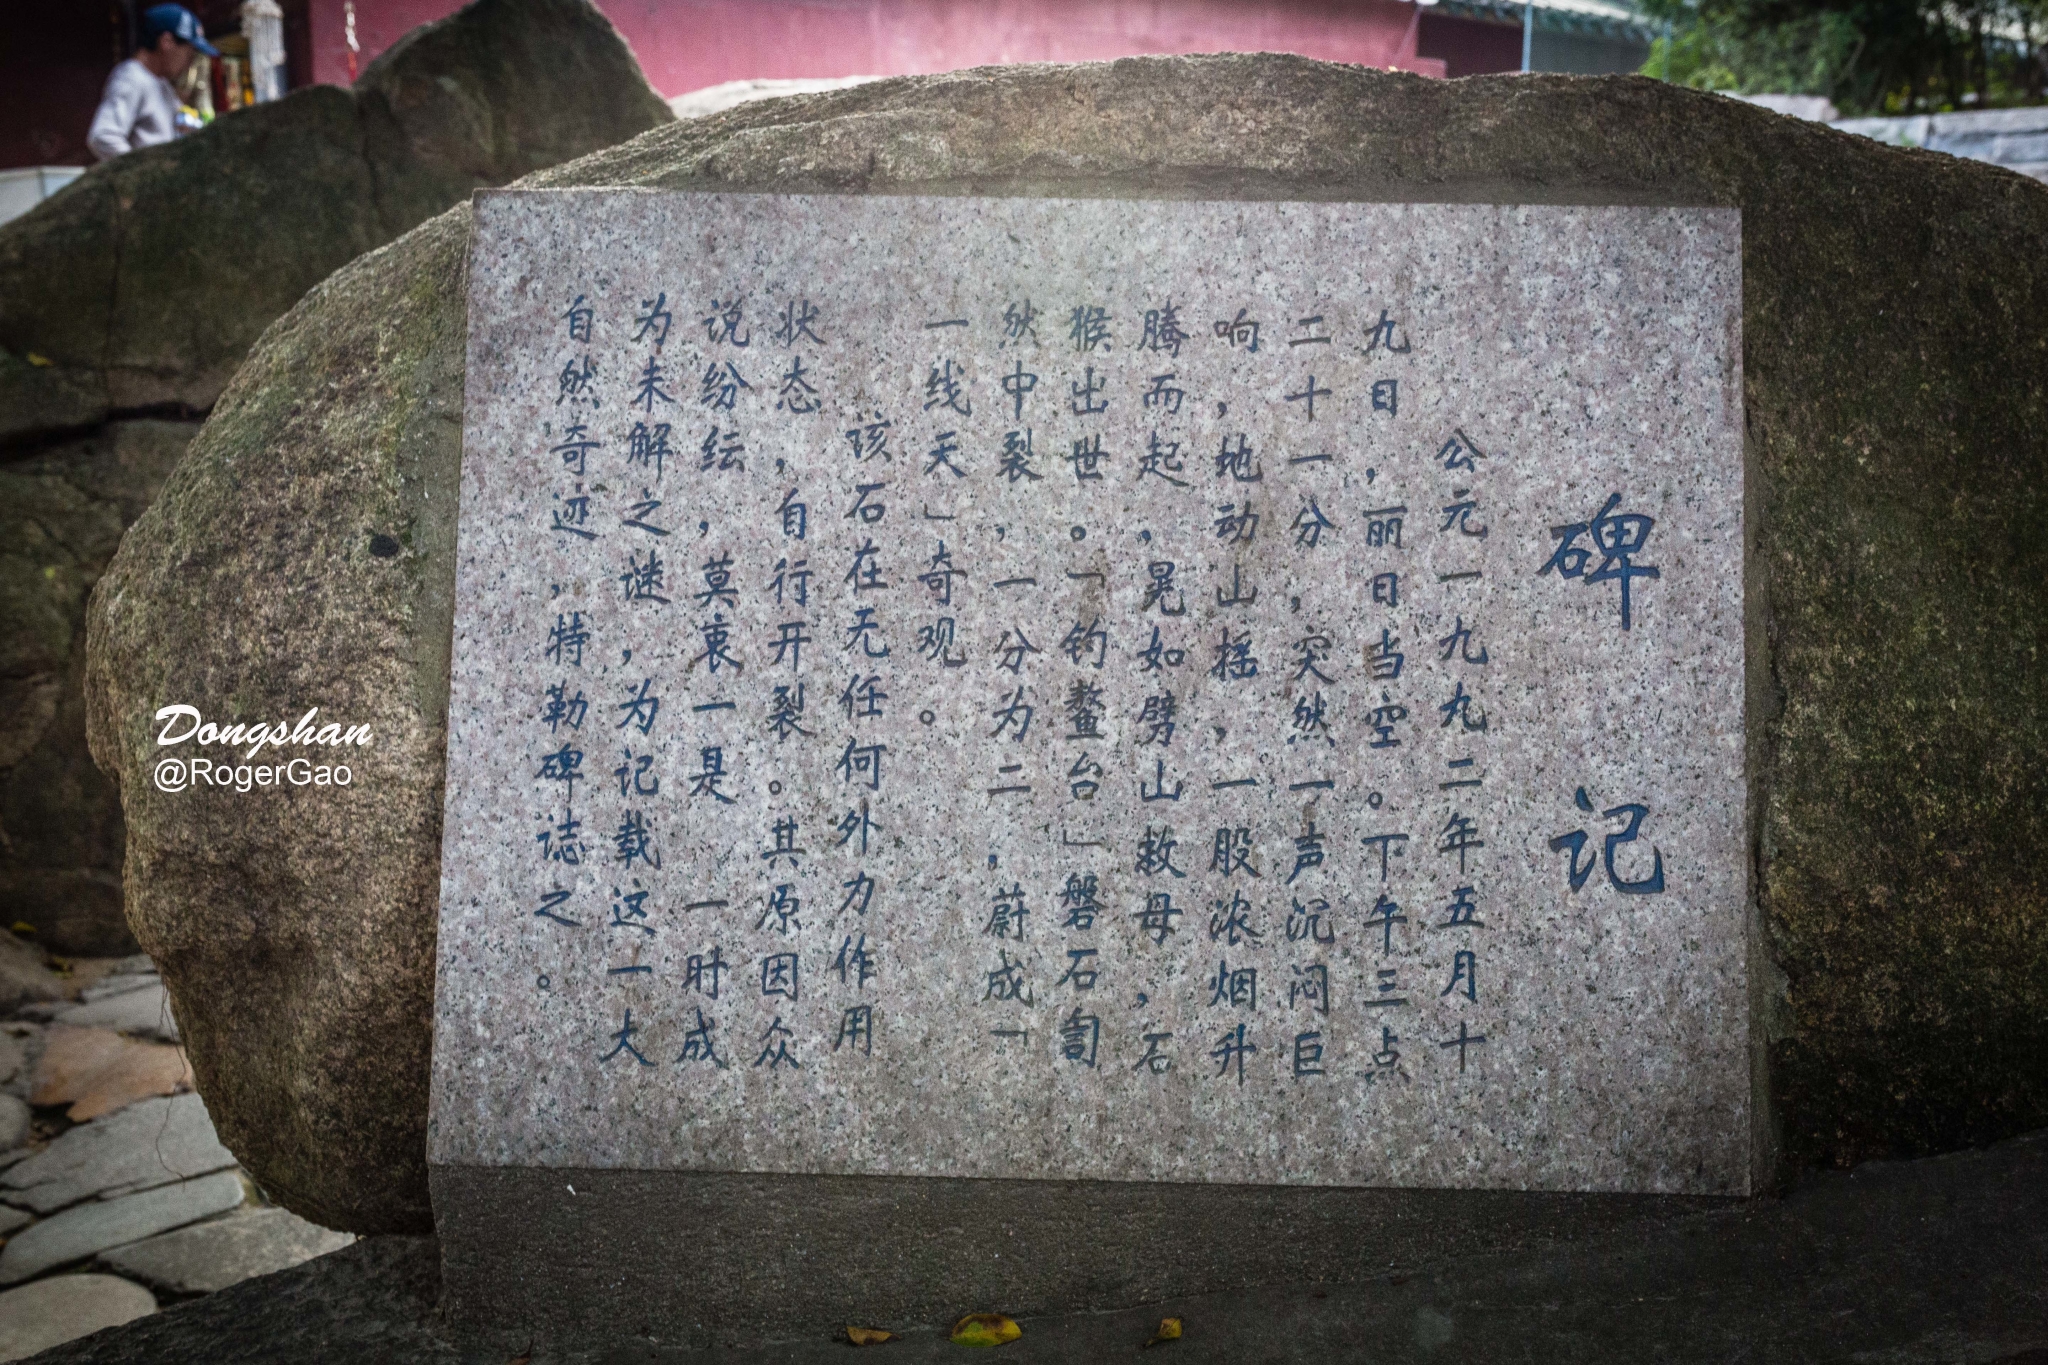 碑记
公元一九九二年五月十
九日,丽日当空。下午三点
二十一分,突然一声沉闷巨
响,地动山摇,一股浓烟升
腾而起,晃如劈山救母,石
猴出世。「钓鳌台」磐石訇
然中裂,一分为二,蔚成「
一线天」奇观。
该石在无任何外力作用
状态,自行开裂。其原因众
说纷纭,莫衷一是 一时成
为未解之谜,为记载这一大
自然奇迹,特勒碑誌之。
Dongshan
@RogerGao